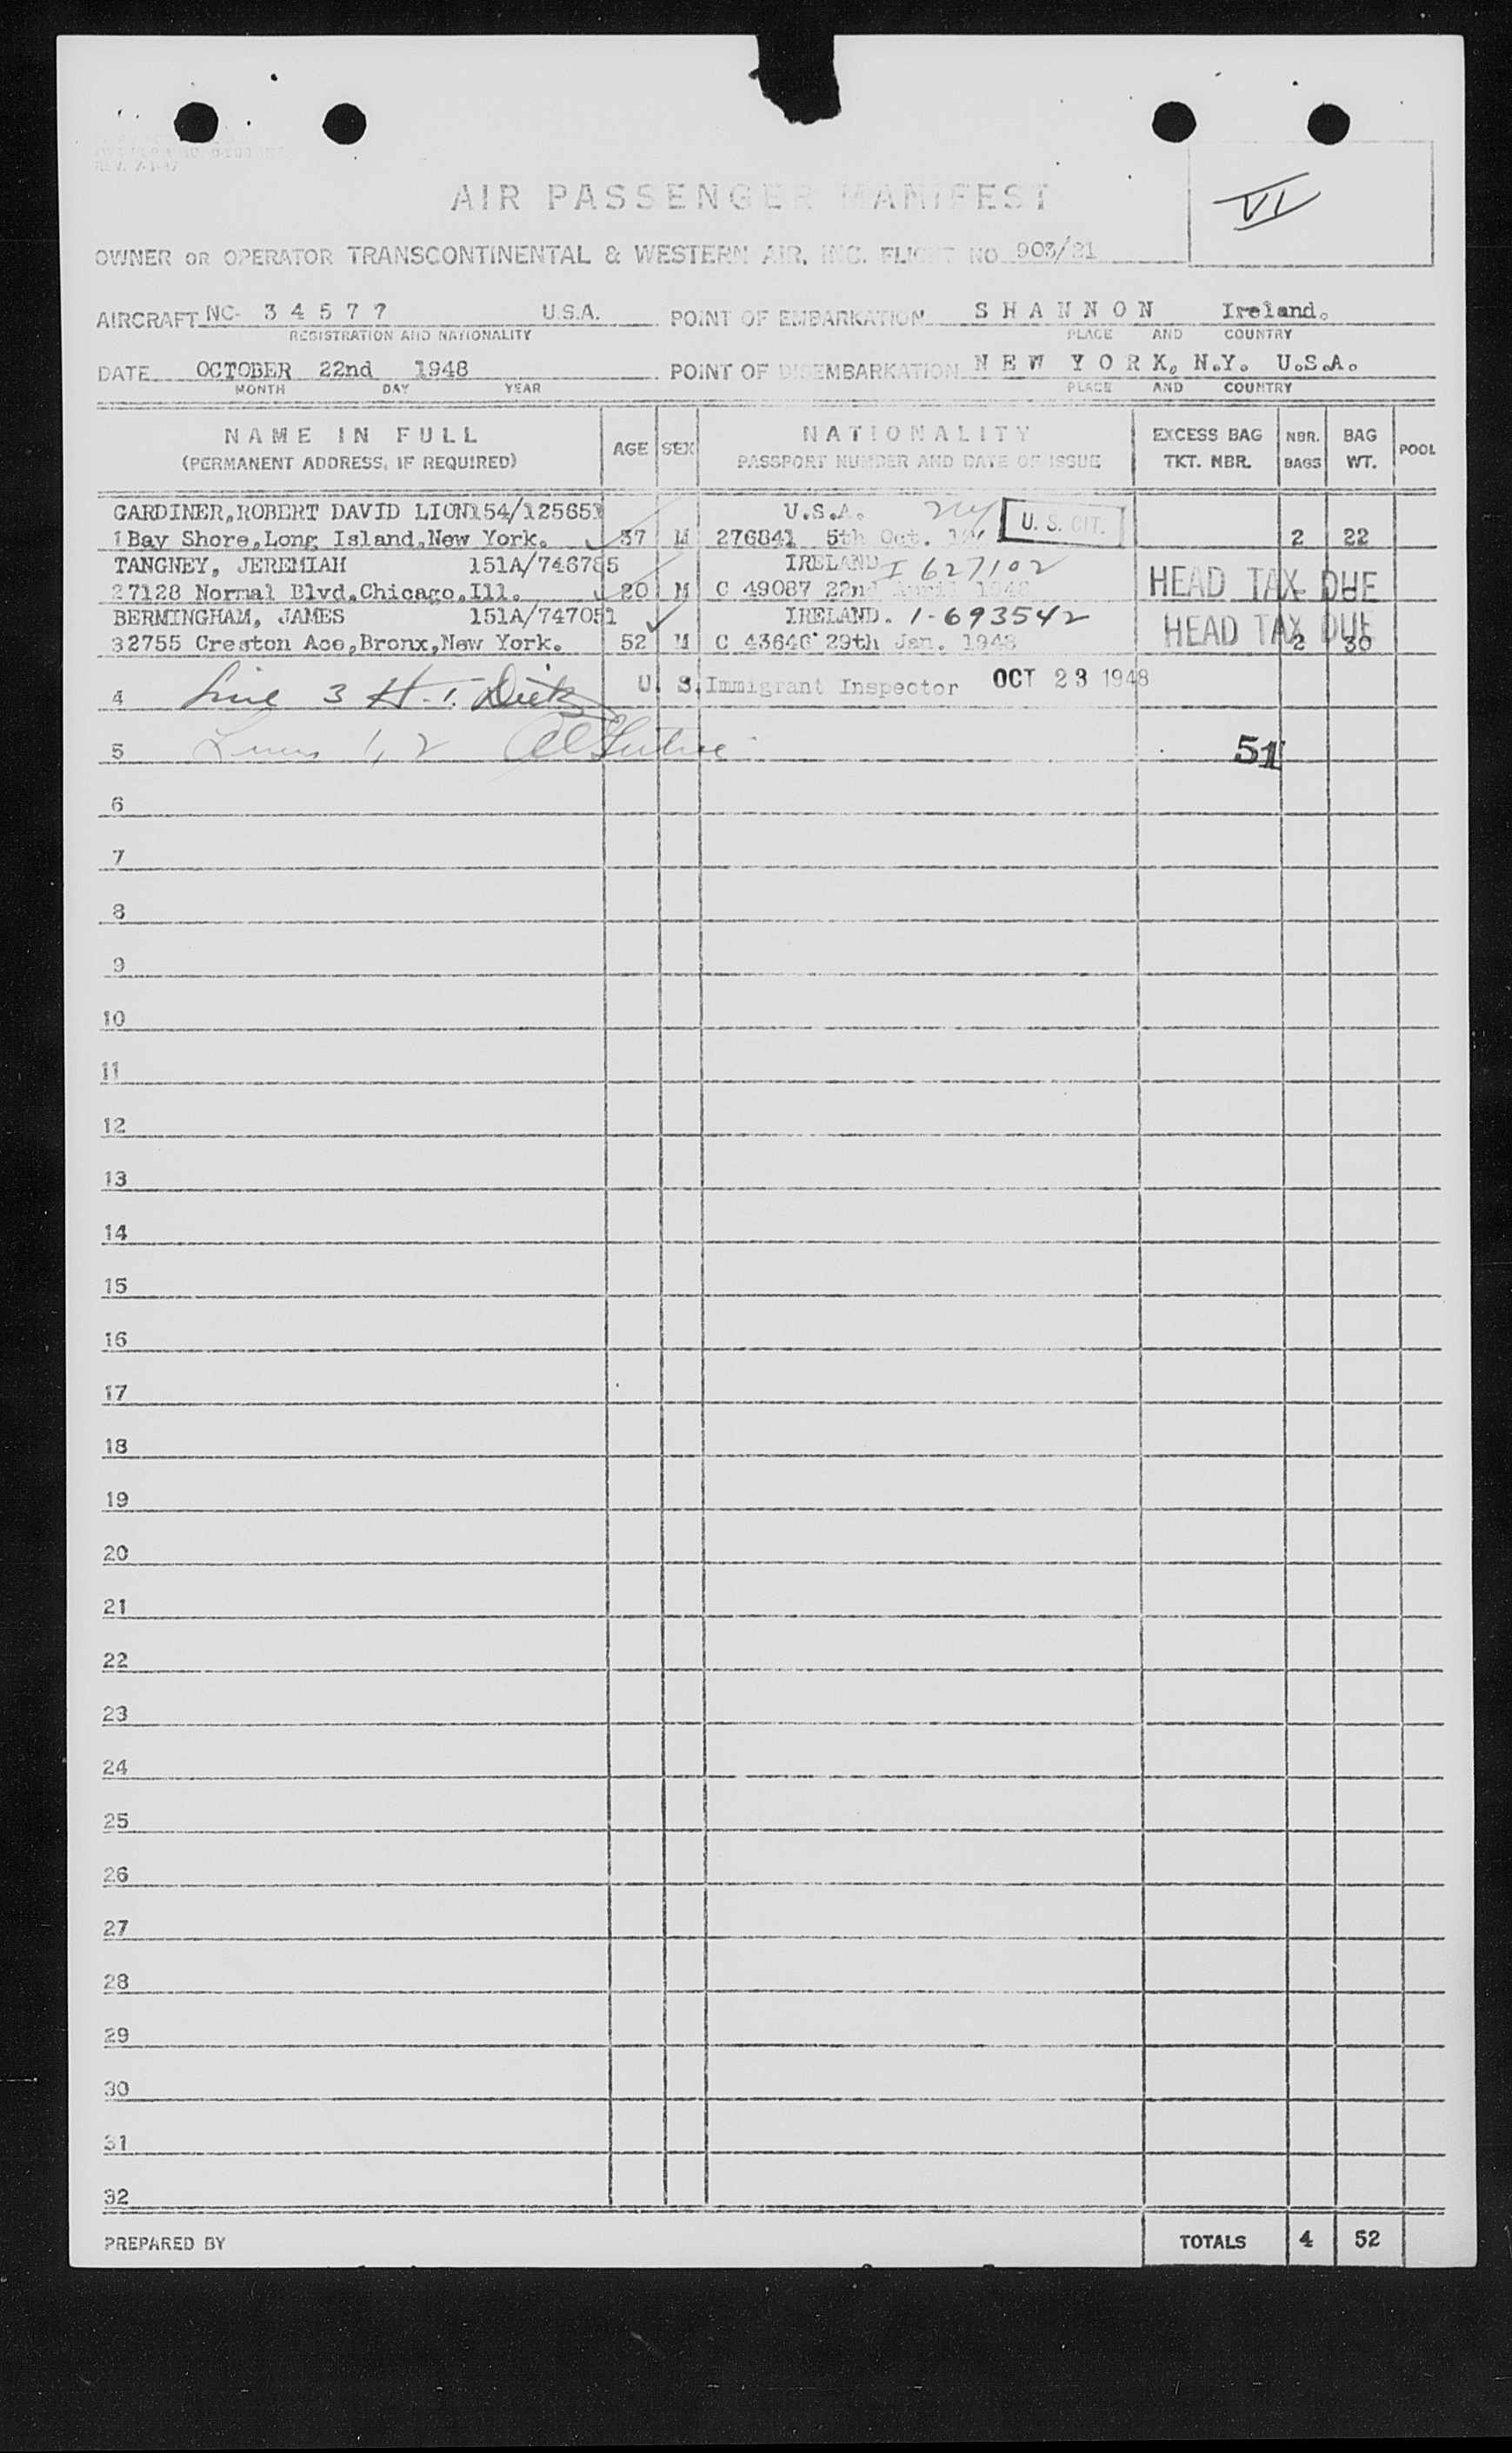 REV. 7-1-47
VI
AIR PASSENGER MANIFEST
OWNER OR OPERATOR TRANSCONTINENTAL & WESTERN AIR, INC. FLIGHT NO 903/21
AIRCRAFT NC- 3 4 5 7 7 U.S.A. POINT OF EMBARKATION S H A N N O N Ireland.
REGISTRATION AND NATIONALITY PLACE AND COUNTRY
DATE OCTOBER 22nd 1948 POINT OF DISEMBARKATION N E W Y O R K, N.Y. U.S.A.
MONTH DAY YEAR PLACE AND COUNTRY
NAME IN FULL AGE SEX NATIONALITY EXCESS BAG NBR. BAG POOL
(PERMANENT ADDRESS, IF REQUIRED) PASSPORT NUMBER AND DATE OF ISSUE TKT. NBR. BAGS WT.
GARDINER,ROBERT DAVID LION154/125651 U.S.A. U. S. CIT.
1 Bay Shore,Long Island,New York. 37 M 276841 5th Oct. 2 22
TANGNEY, JEREMIAH 151A/746785 IRELAND I 627102
27128 Normal Blvd,Chicago,Ill. 20 M C 49087 22nd April 1948 HEAD TAX DUE
BERMINGHAM, JAMES 151A/747051 IRELAND. 1-693542
32755 Creston Ace,Bronx,New York. 52 M C 43646 29th Jan. 1948 HEAD TAX DUE 2 30
4 Line 3 H. T. Dietz U. S. Immigrant Inspector OCT 23 1948
5 Lines 1, 2 51
6
7
8
9
10
11
12
13
14
15
16
17
18
19
20
21
22
23
24
25
26
27
28
29
30
31
32
PREPARED BY TOTALS 4 52